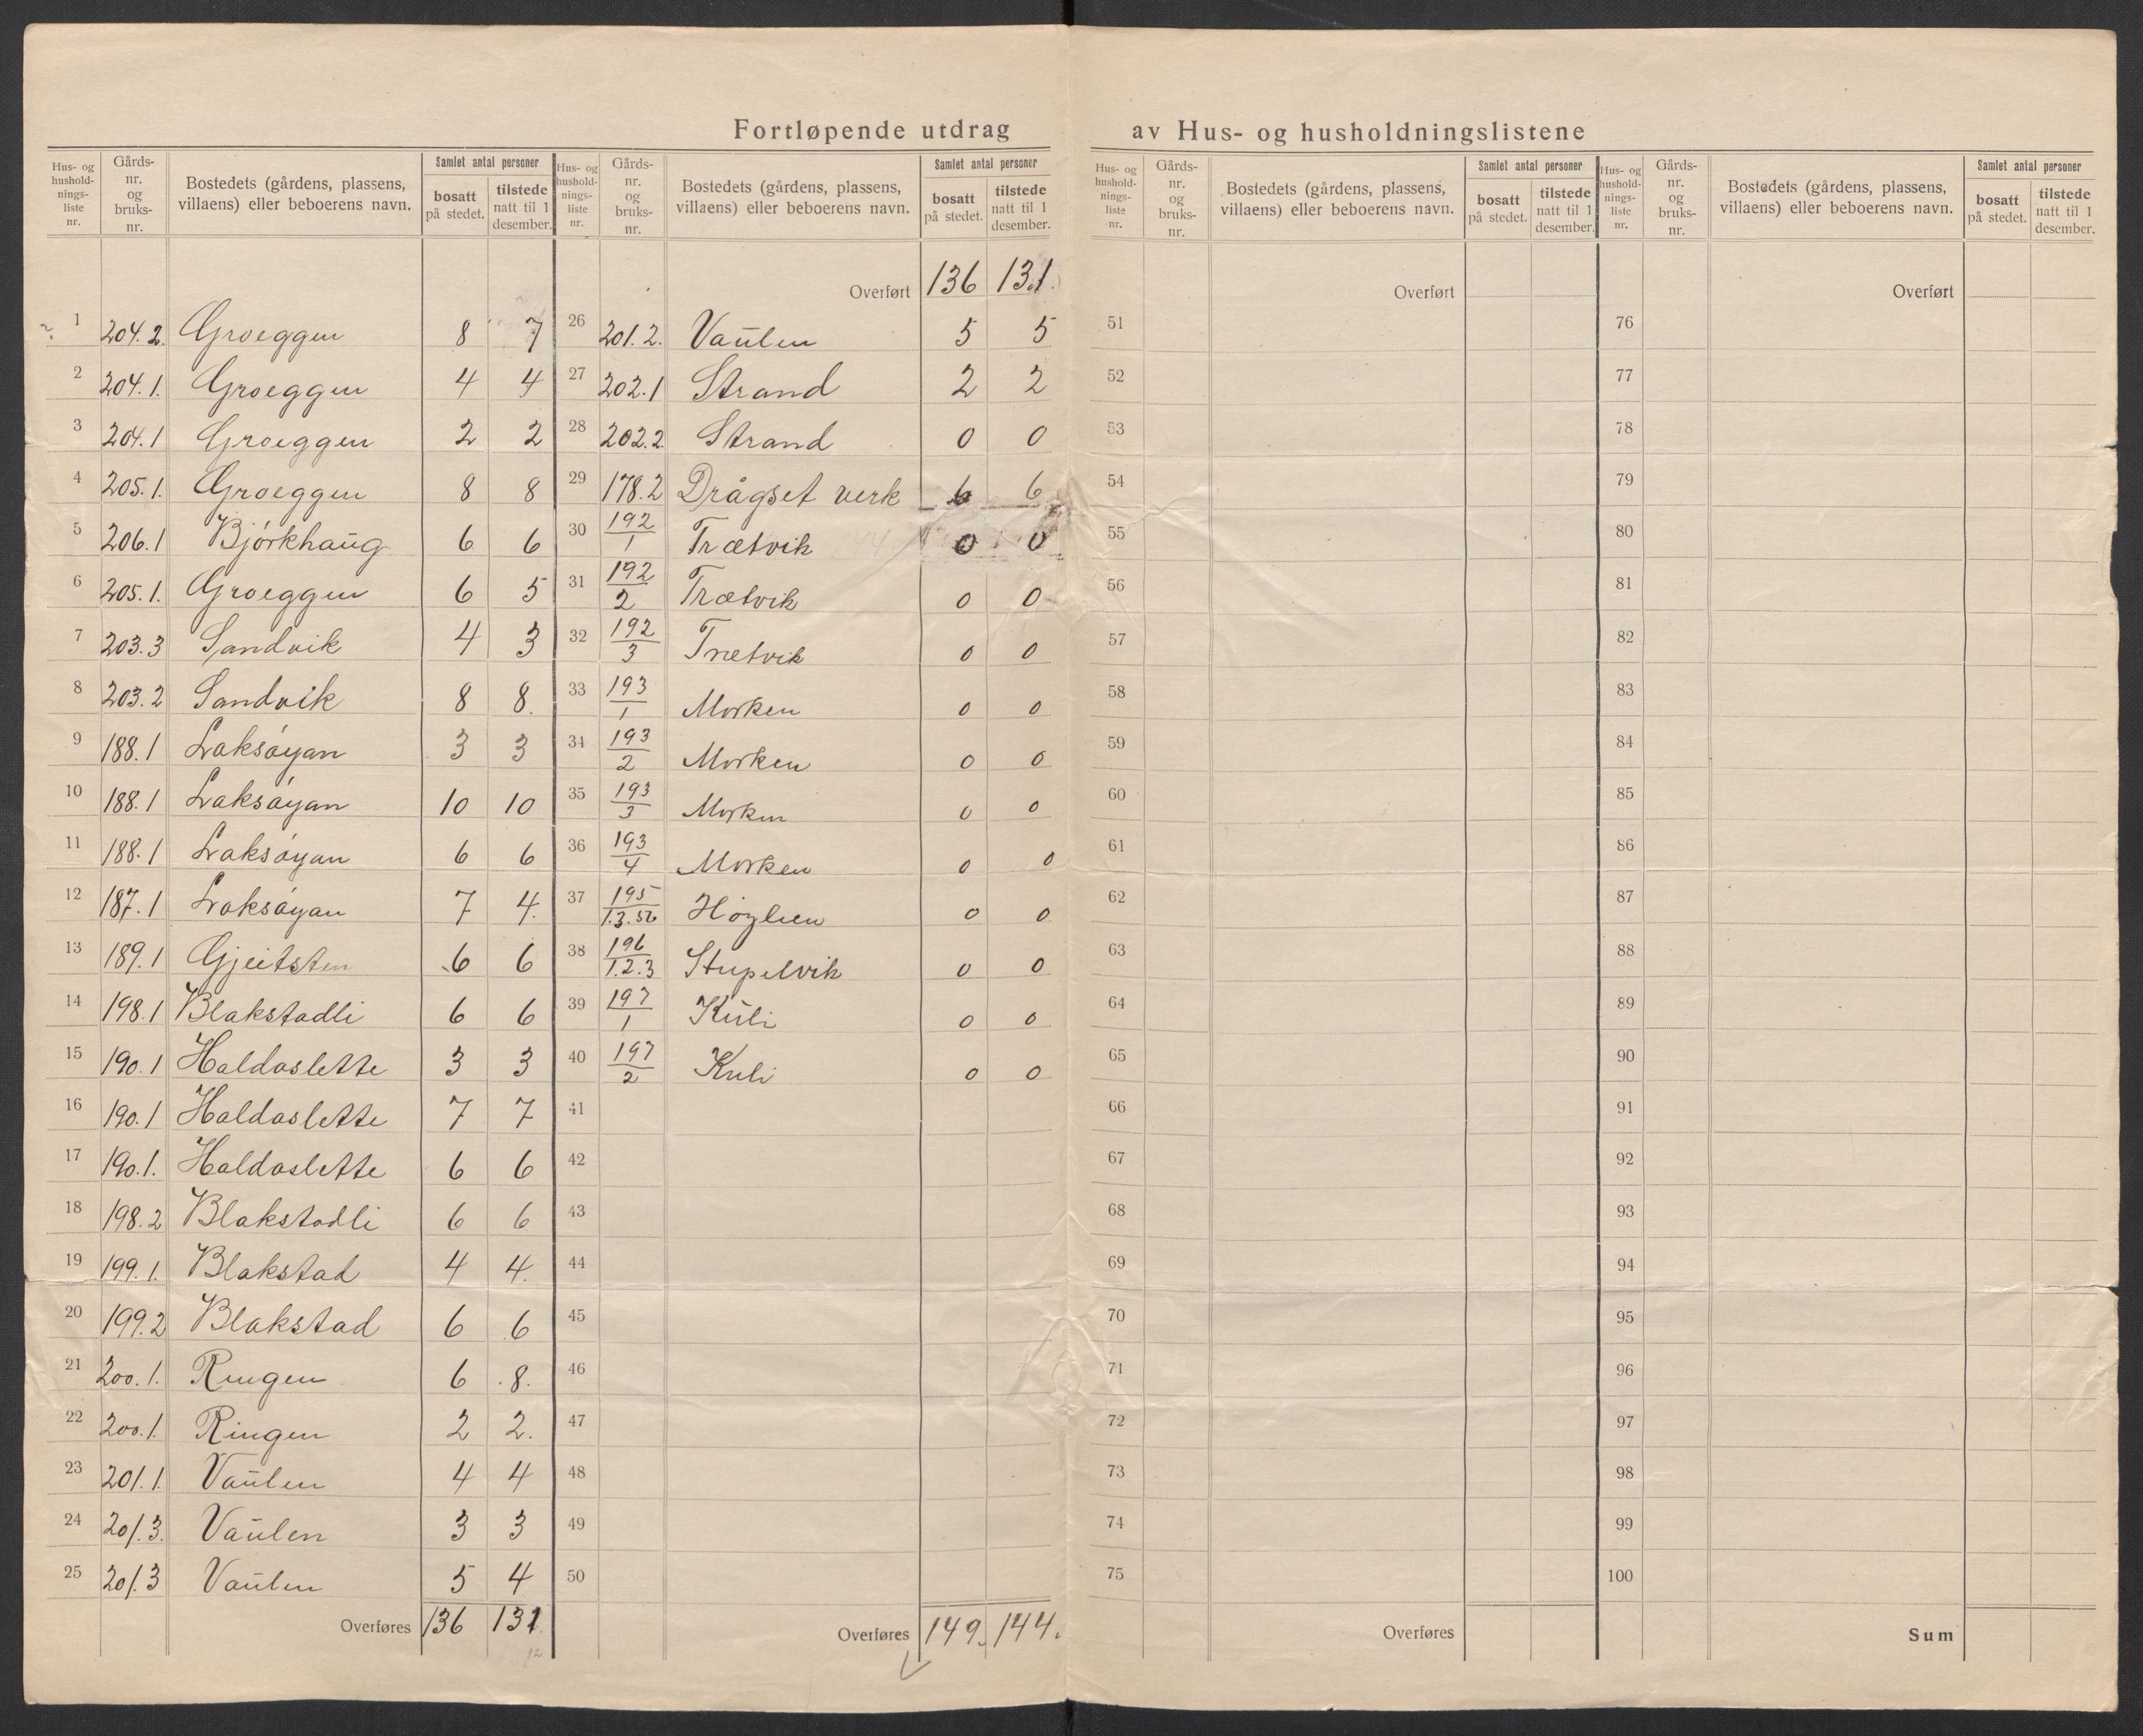 Fortløpende utdrag av Hus- og husholdningslistene
Hus- og husholdnings-liste nr. | Gårds-nr. og bruks-nr. | Bostedets (gårdens, plassens, villaens) eller beboerens navn. | Samlet antal personer | bosatt på stedet. | tilstede natt til 1 desember.
1 204.2. Groeggen 8 7
2 204.1. Groeggen 4 4
3 204.1 Groeggen 2 2
4 205.1. Groeggen 8 8
5 206.1 Bjørkhaug 6 6
6 205.1. Groeggen 6 5
7 203.3 Sandvik 4 3
8 203.2 Sandvik 8 8.
9 188.1 Laksøyan 3 3
10 188.1 Laksøyan 10 10
11 188.1 Laksøyan 6 6
12 187.1 Laksøyan 7 4.
13 189.1 Gjeitsten 6 6
14 198.1 Blakstadli 6 6
15 190.1 Haldoslette 3 3
16 190.1 Haldoslette 7 7
17 190.1. Haldoslette 6 6
18 198.2 Blakstadli 6 6
19 199.1. Blakstad 4 4.
20 199.2 Blakstad 6 6
21 200.1. Ringen 6 8.
22 200.1. Ringen 2 2.
23 201.1. Vaulen 4 4
24 201.3. Vaulen 3 3
25 201.3 Vaulen 5 4
Overføres 136 131.
12
Hus- og husholdnings-liste nr. | Gårds-nr. og bruks-nr. | Bostedets (gårdens, plassens, villaens) eller beboerens navn. | Samlet antal personer | bosatt på stedet. | tilstede natt til 1 desember.
Overført 136 131.
26 201.2. Vaulen 5 5
27 202.1 Strand 2 2
28 202.2. Strand 0 0
29 178.2 Drågset verk 6 6
30 192/1 Trætvik 0 0
31 192/2 Trætvik 0 0
32 192/3 Trætvik 0 0
33 193/1 Morken 0 0
34 193/2 Morken 0 0
35 193/3 Morken 0 0
36 193/4 Morken 0 0
37 195/ Høylien 0 0
38 196/1.2.3 Stupelvik 0 0
39 197/1 Kuli 0 0
40 197/2 Kuli 0 0
41
42
43
44
45
46
47
48
49
50
Overføres 149. 144.
Hus- og husholdnings-liste nr. | Gårds-nr. og bruks-nr. | Bostedets (gårdens, plassens, villaens) eller beboerens navn. | Samlet antal personer | bosatt på stedet. | tilstede natt til 1 desember.
Overført
51
52
53
54
55
56
57
58
59
60
61
62
63
64
65
66
67
68
69
70
71
72
73
74
75
Overføres
Hus- og husholdnings-liste nr. | Gårds-nr. og bruks-nr. | Bostedets (gårdens, plassens, villaens) eller beboerens navn. | Samlet antal personer | bosatt på stedet. | tilstede natt til 1 desember.
Overført
76
77
78
79
80
81
82
83
84
85
86
87
88
89
90
91
92
93
94
95
96
97
98
99
100
Sum